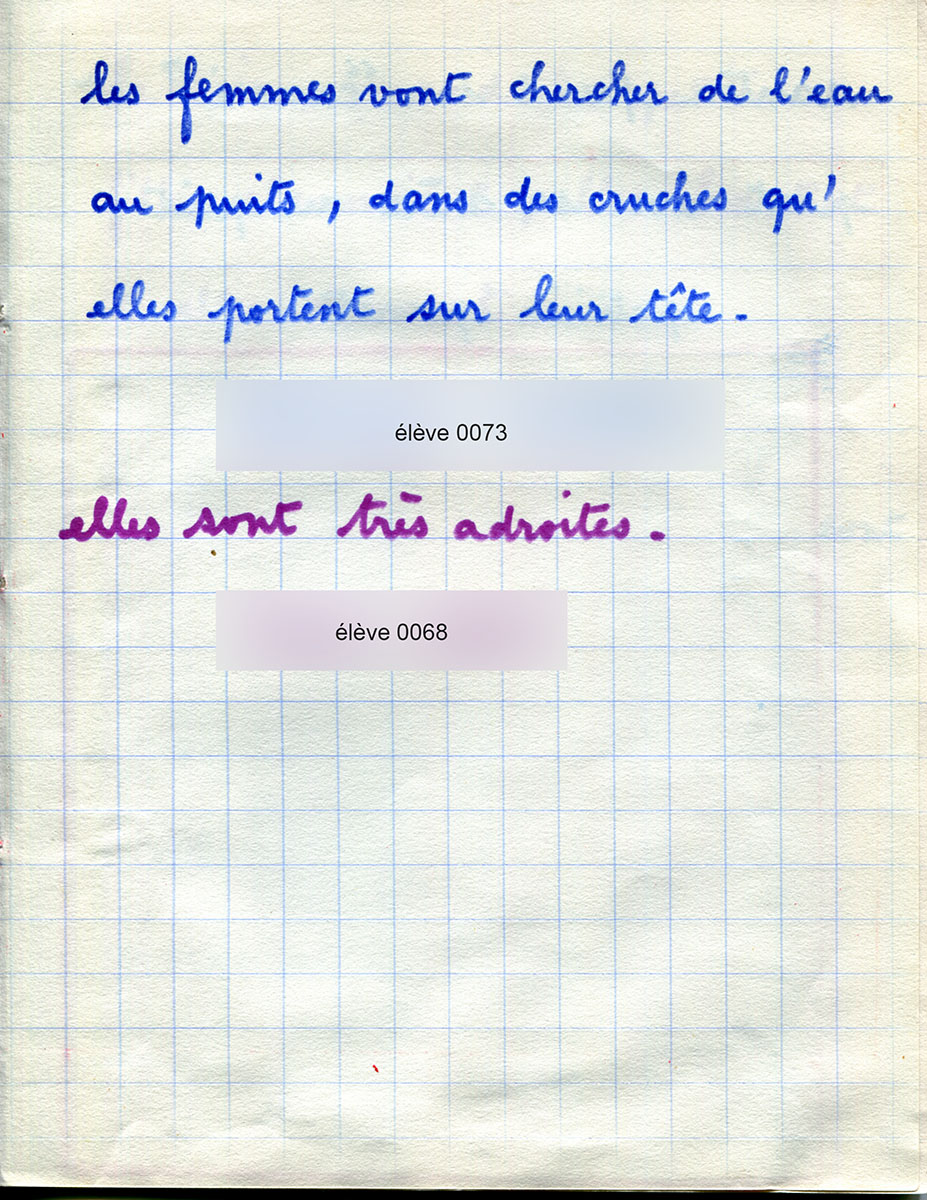 les femmes vont chercher de l'eau
au puits, dans des cruches qu'
elles portent sur leur tête.
élève 0073
elles sont très adroites.
élève 0068